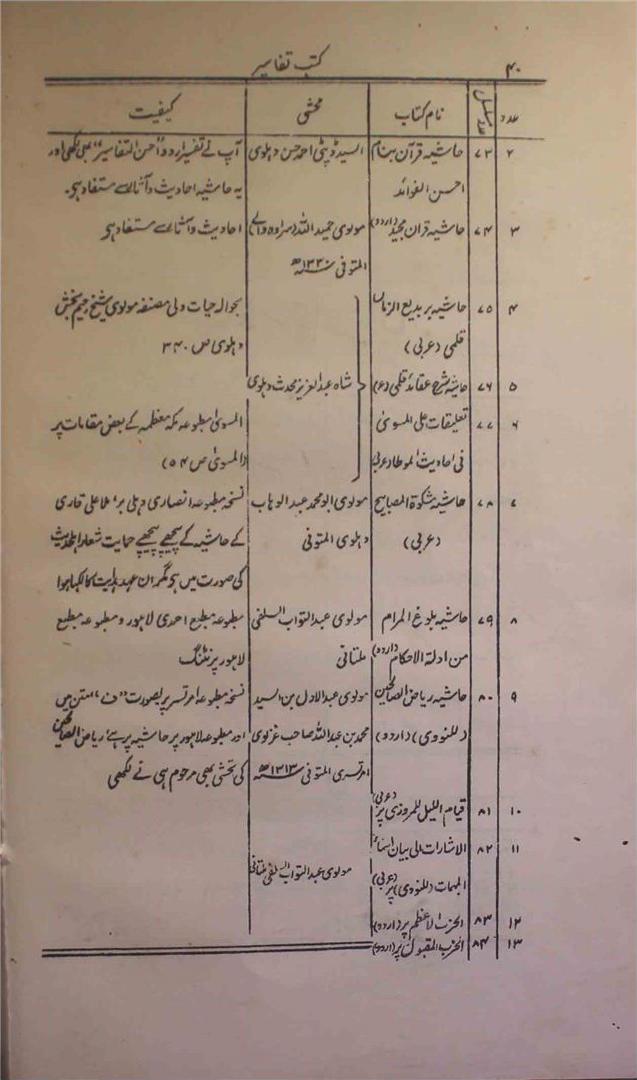 ۴۰ کتب تفاسیر
عدد عدد مسلسل نام کتاب محشی کیفیت
۲ ۷۳ حاشیہ قرآن بنام السید ڈپٹی احمد حسن دہلوی آپ نے تفسیر اردو "احسن التفاسیر" بھی لکھی اور
احسن الفوائد یہ حاشیہ احادیث و آثار سے مستفاد ہے۔
۳ ۷۴ حاشیہ قرآن مجید (اردو) مولوی حمید اللہ (سراوہ والے) احادیث و آثار سے مستفاد ہے
المتوفی ۱۳۳۰ھ
۴ ۷۵ حاشیہ بر بدیع المیزان بحوالہ حیات ولی مصنفہ مولوی شیخ رحیم بخش
قلمی (عربی) دہلوی ص ۳۴۰
۵ ۷۶ حاشیہ شرح عقائد قلمی (ع) شاہ عبدالعزیز محدث دہلوی
۶ ۷۷ تعلیقات علی المسویٰ المسویٰ مطبوعہ مکہ معظمہ کے بعض مقامات پر
فی احادیث الموطا (عربی) (المسویٰ ص ۵۴)
۷ ۷۸ حاشیہ مشکوٰۃ المصابیح مولوی ابو محمد عبدالوہاب نسخہ مطبوعہ انصاری دہلی پر ملا علی قاری
(عربی) دہلوی المتوفی کے حاشیہ کے پیچھے پیچھے حمایت شعار اہلحدیث
کی صورت میں ہے مگر ان عہد بدایت کا لکھا ہوا
۸ ۷۹ حاشیہ بلوغ المرام مولوی عبدالتواب السلفی مطبوعہ مطبع احمدی لاہور و مطبوعہ مطبع
من ادلۃ الاحکام (اردو) ملتانی لاہور پرنٹنگ
۹ ۸۰ حاشیہ ریاض الصالحین مولوی عبدالاول بن السید نسخہ مطبوعہ امرتسر پر بصورت "ف" متن میں
(للنووی) (اردو) محمد بن عبداللہ صاحب غزنوی اور مطبوعہ لاہور پر حاشیہ پر ہے، ریاض الصالحین
امرتسری المتوفی ۱۳۱۳ھ کی تحشی بھی مرحوم ہی نے لکھی
۱۰ ۸۱ قیام اللیل للمروزی پر (عربی)
۱۱ ۸۲ الاشارات الی بیان اسماء
المبہمات (للنووی) پر (عربی) مولوی عبدالتواب السلفی ملتانی
۱۲ ۸۳ الحزب الاعظم پر (اردو)
۱۳ ۸۴ الحزب المقبول پر (اردو)